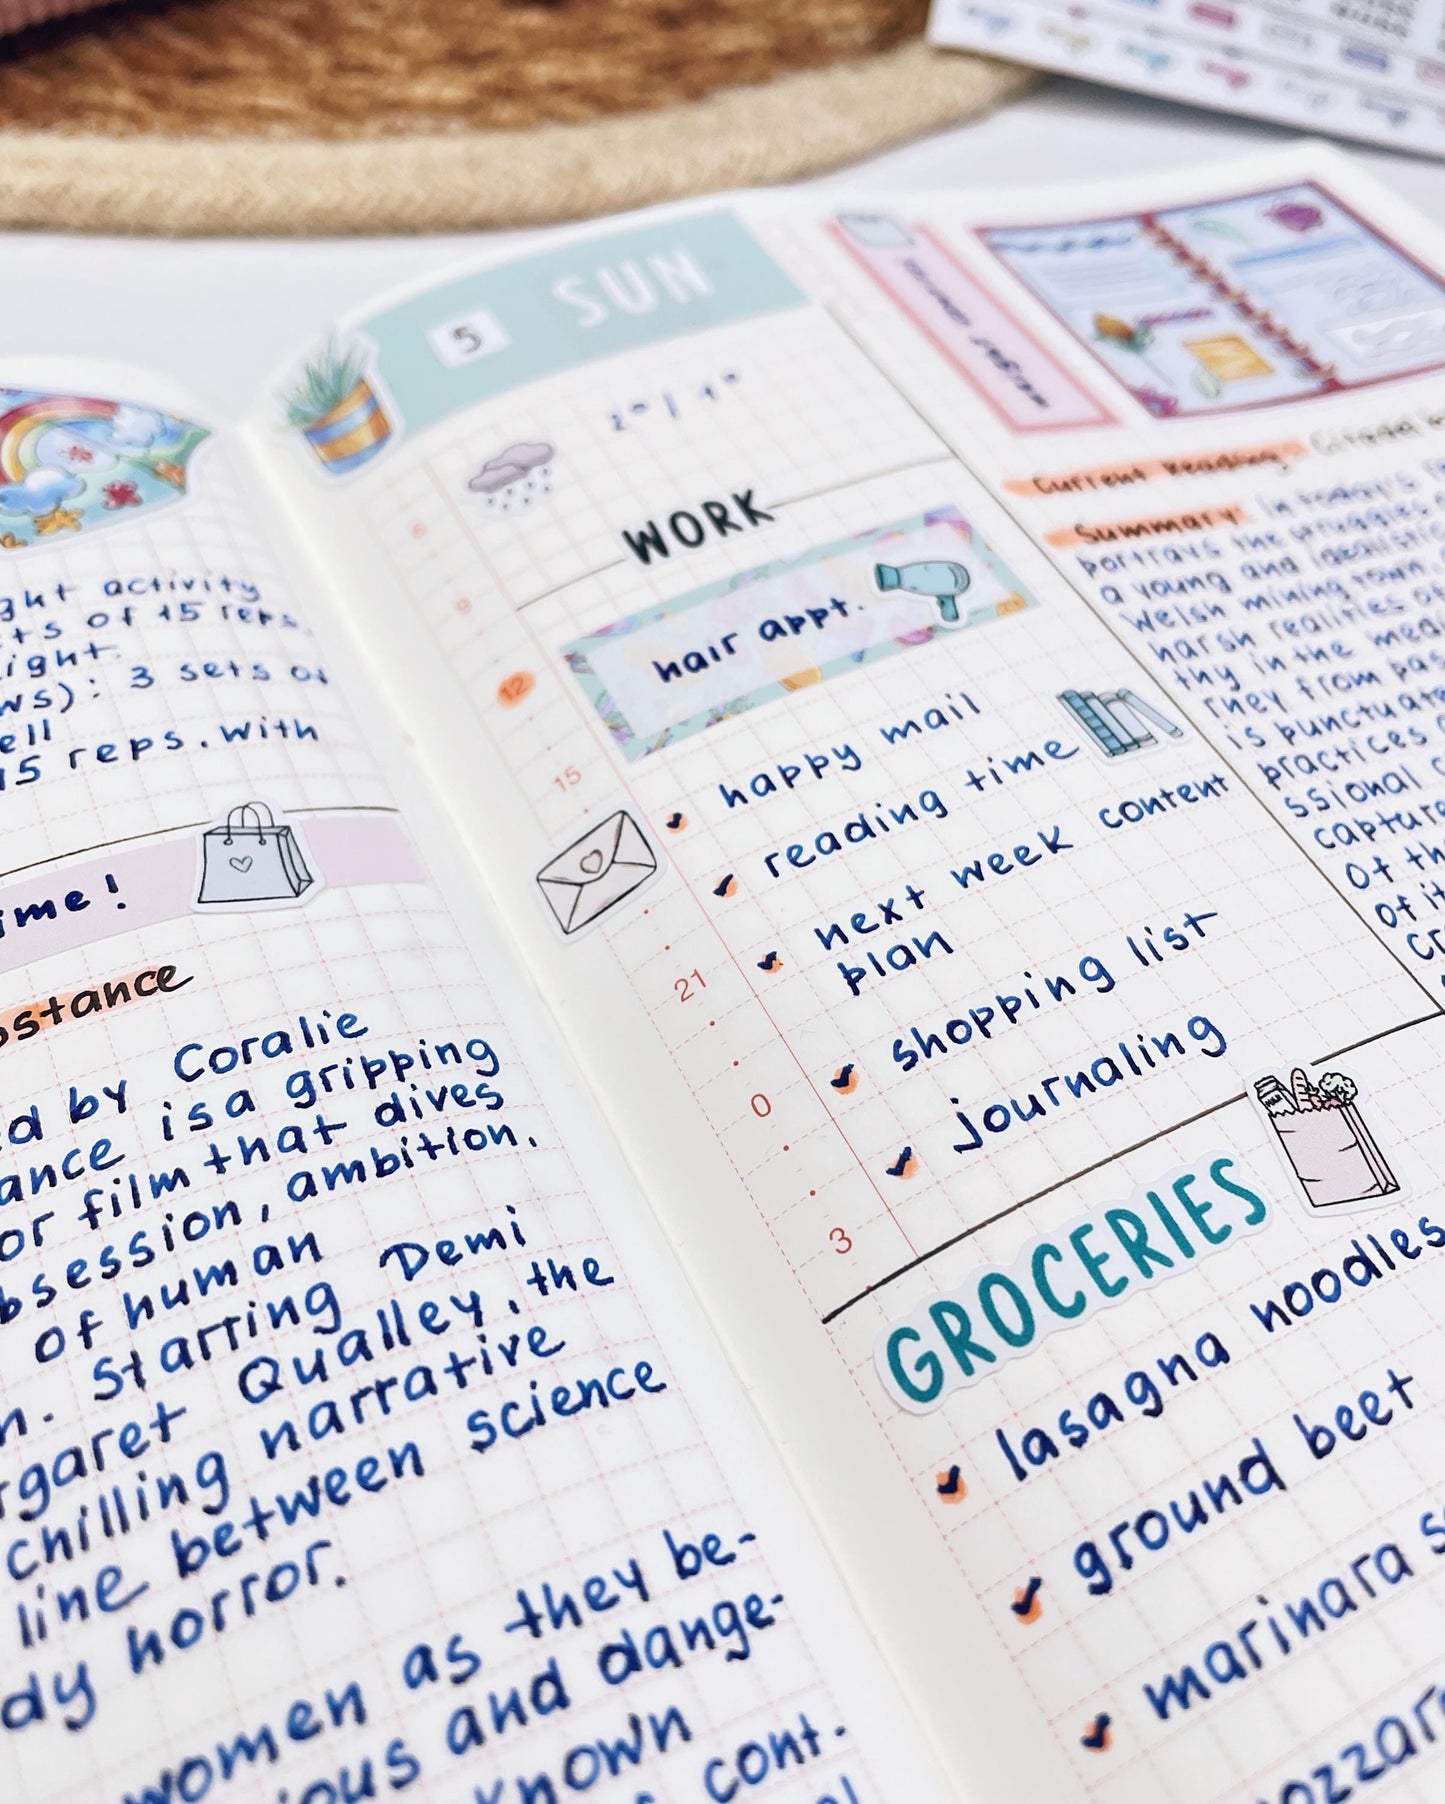 ght activity
ts of 15 reps.
ight.
ws): 3 sets of
ell
15 reps. with
ime!
bstance
ed by Coralie
ance is a gripping
or film that dives
bsession, ambition,
of human
n. Starring Demi
rgaret Qualley, the
chilling narrative
line between science
dy horror.
women as they be-
ious and dange-
known
cont.
5 SUN
2° | 1°
WORK
hair appt.
happy mail
reading time
next week content
plan
shopping list
journaling
9
12
15
21
0
3
GROCERIES
lasagna noodles
ground beet
marinara s
ozzar
Current Reading: Citadel
Summary: In today's
portrays the struggles
a young and idealistic
Welsh mining town.
harsh realities of
thy in the med
rney from pas
is punctuate
practices
ssional
capture
of th
of it
Cr